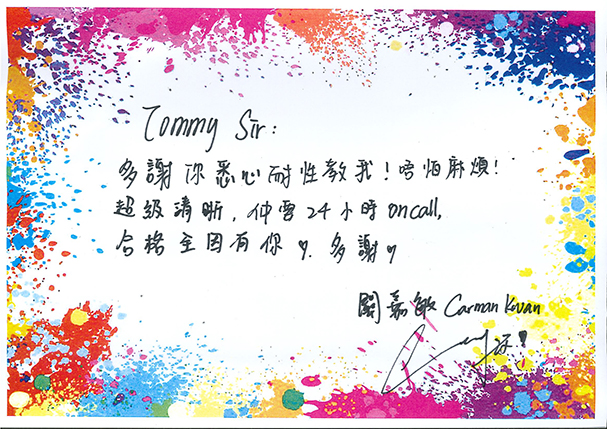 Tommy Sir:
多謝你悉心耐性教我！唔怕麻煩！
超級清晰，仲要24小時oncall,
合格全因有你♡. 多謝♡
關嘉敏 Carman Kwan